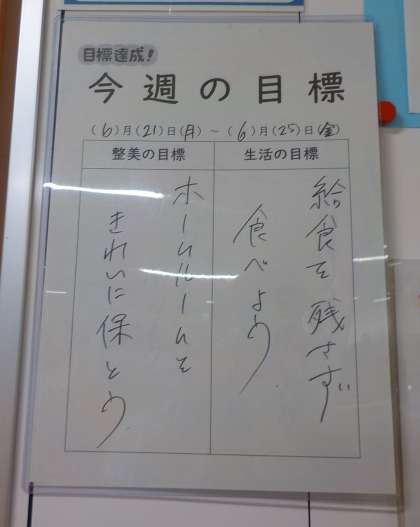 目標達成!
今週の目標
(6)月(21)日(月)~(6)月(25)日(金)
整美の目標
生活の目標
給食を残さず
食べよう。
ホームルームを
きれいに保とう。